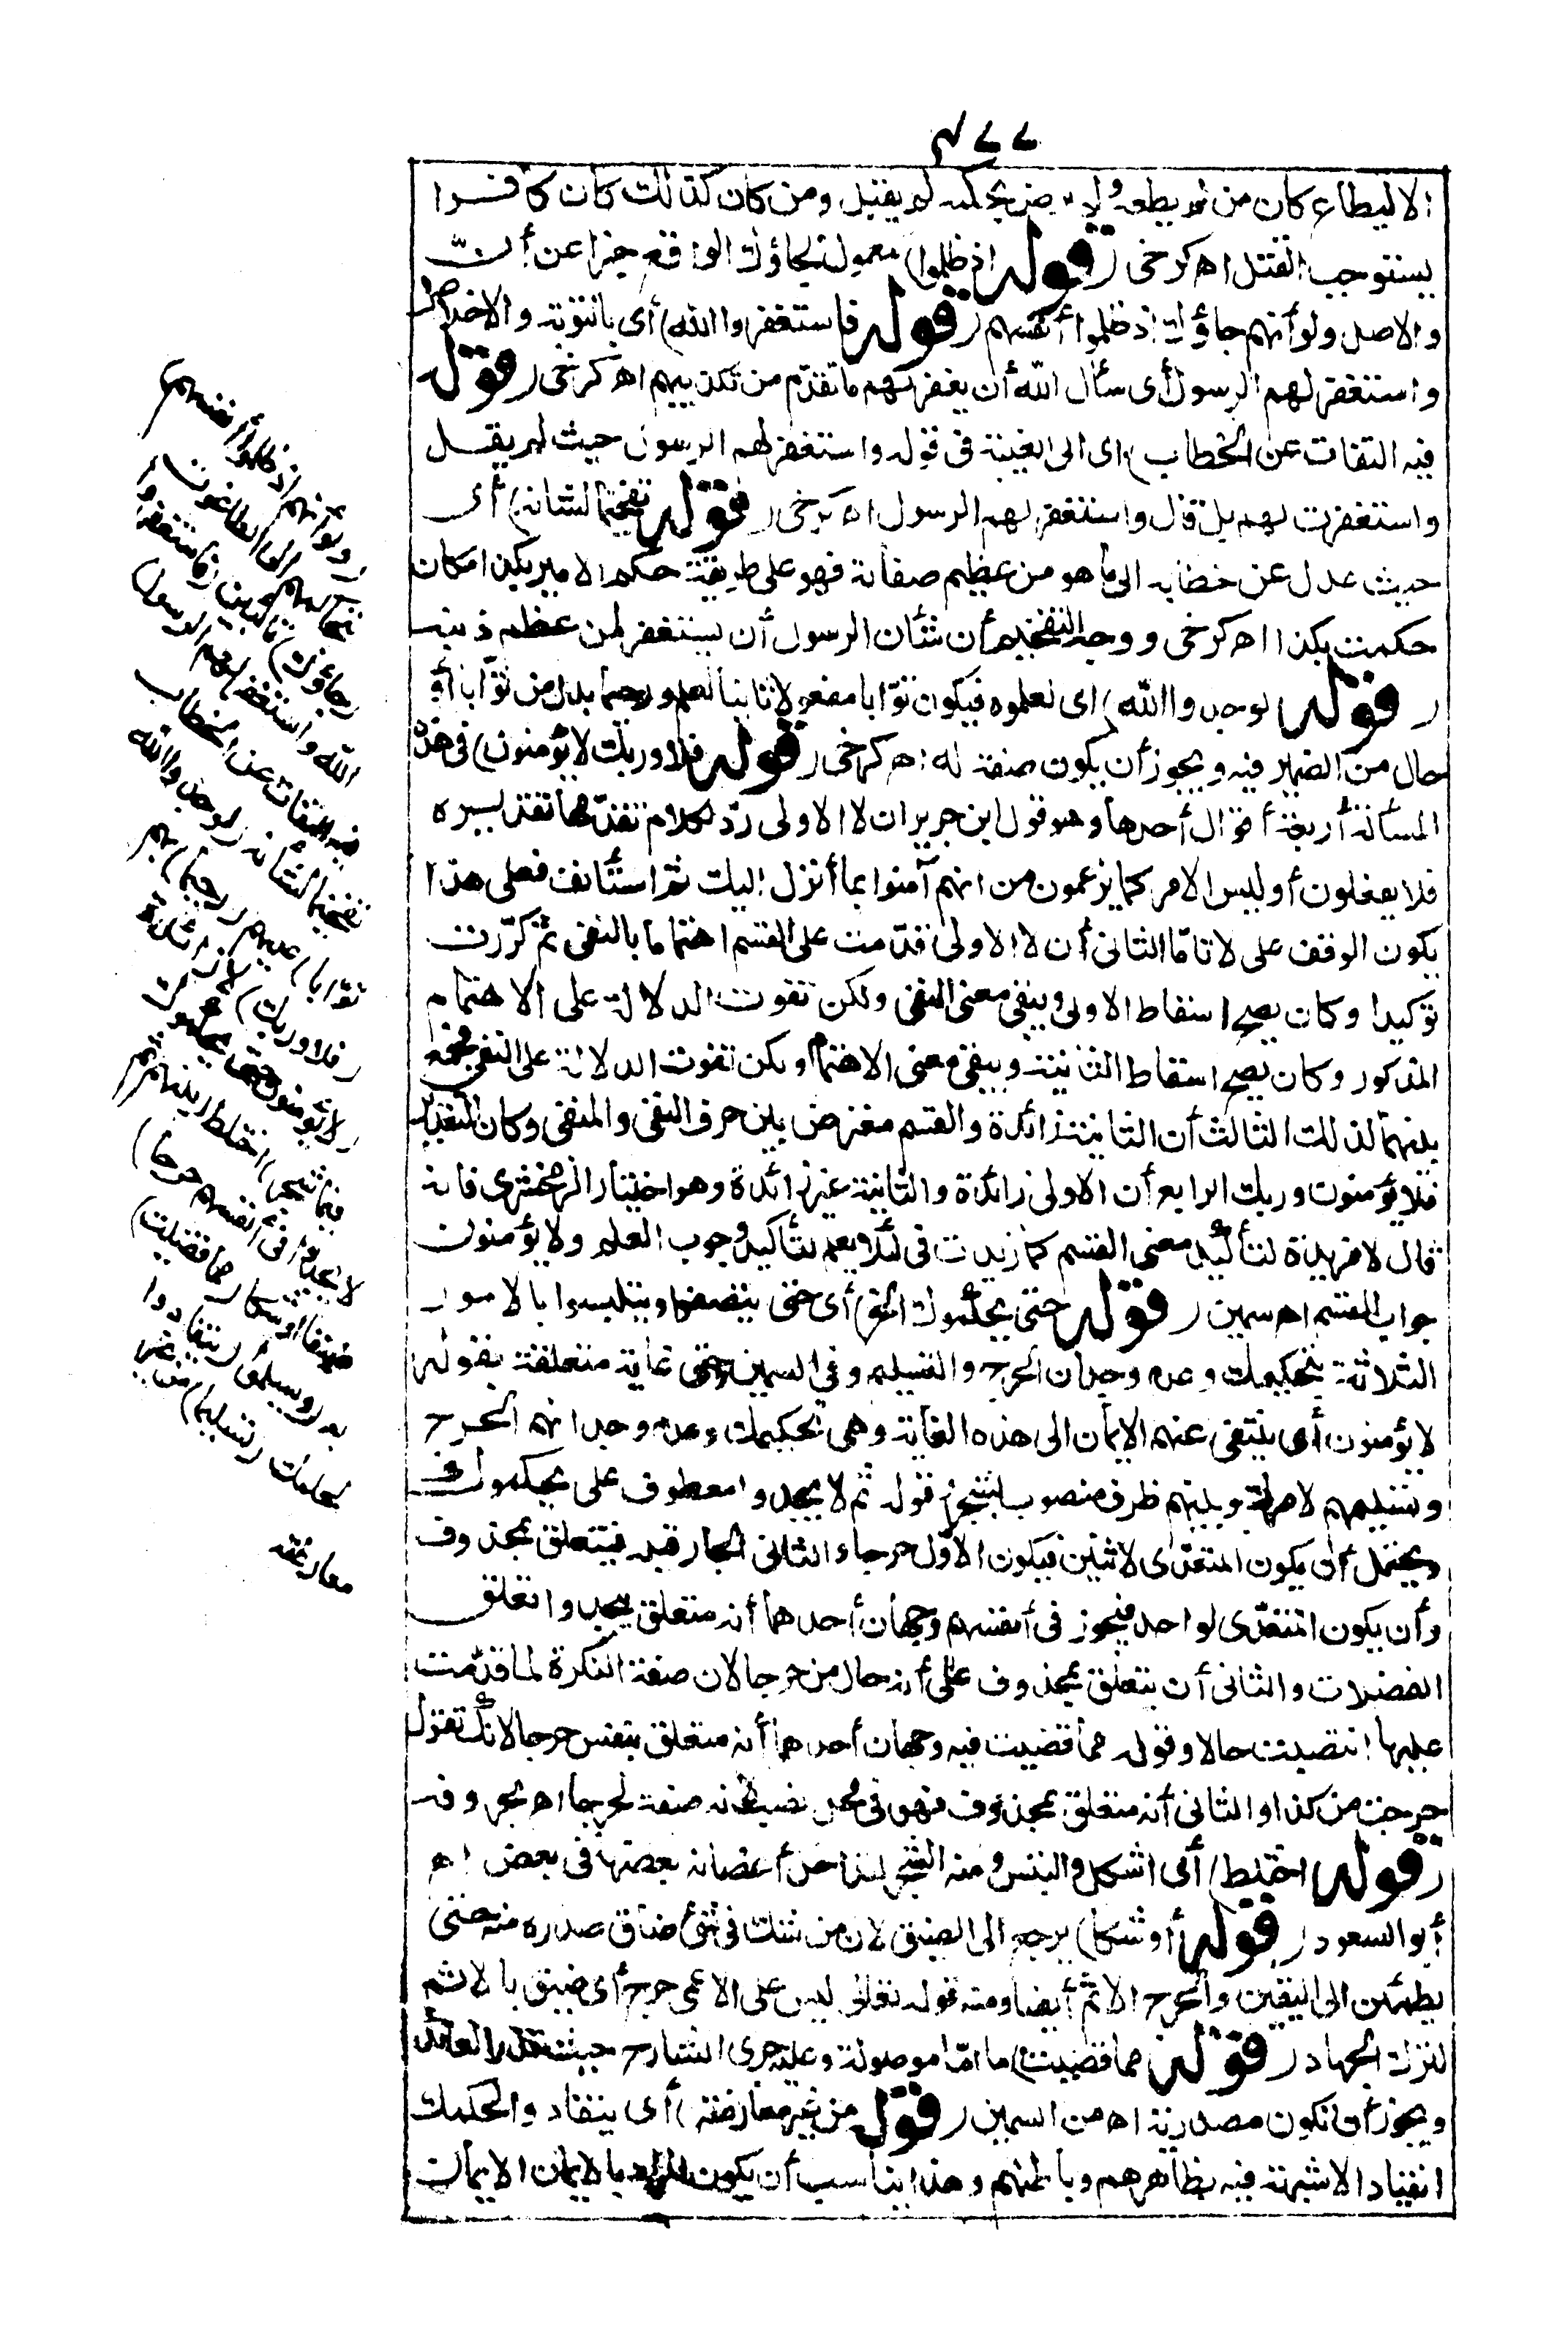 ٤٧٧
الا ليطاع كان من لم يطعه ولم يرض بحكمه لم يقبل ومن كان كذلك كان كافرا
يستوجب القتل اه كرخى (قوله اذ ظلموا) معمول لجاؤك الواقع خبرا عن أنّ
والاصل ولو أنهم جاؤك اذ ظلموا أنفسهم (قوله فاستغفروا الله) أى بالتوبة والاخلاص
واستغفر لهم الرسول أى سأل الله أن يغفر لهم ما تقدّم من تكذيبهم اه كرخى (قوله
فيه التفات عن الخطاب) أى الى الغيبة فى قوله واستغفر لهم الرسول حيث لم يقل
واستغفرت لهم بل قال واستغفر لهم الرسول اه كرخى (قوله تفخيما لشأنه) أى
حيث عدل عن خطابه الى ما هو من عظيم صفاته فهو على طريقة حكم الامير بكذا مكان
حكمت بكذا اه كرخى ووجه التفخيم أن شأن الرسول أن يستغفر لمن عظم ذنبه
(قوله لوجدوا الله) أى لعلموه فيكون توّابا مفعولا ثانيا لعلم ورحيما بدل من توّابا أو
حال من الضمير فيه ويجوز أن يكون صفة له اه كرخى (قوله فلا وربك لا يؤمنون) فى هذه
المسألة أربعة أقوال أحدها وهو قول ابن جرير ان لا الاولى ردّ لكلام تقدّمها تقديره
فلا يعقلون أو ليس الامر كما يزعمون من انهم آمنوا بما أنزل اليك ثم استأنف فعلى هذا
يكون الوقف على لا تامّا الثانى أن لا الاولى قدّمت على القسم اهتماما بالنفى ثم كرّرت
توكيدا وكان يصح اسقاط الاولى ويبقى معنى النفى ولكن تفوت الدلالة على الاهتمام
المذكور وكان يصح اسقاط الثانية ويبقى معنى الاهتمام ولكن تفوت الدلالة على النفى فجمع
بينهما لذلك الثالث أن الثانية زائدة والقسم معترض بين حرف النفى والمنفى وكان التقدير
فلا يؤمنون وربك الرابع أن الاولى زائدة والثانية غير زائدة وهو اختيار الزمخشرى فانه
قال لا مزيدة لتأكيد معنى القسم كما زيدت فى لئلا يعلم لتأكيد وجوب العلم ولا يؤمنون
جواب القسم اه سمين (قوله حتى يحكموك الخ) أى حتى يتصفوا ويتلبسوا بالامور
الثلاثة تحكيمك وعدم وجدان الحرج والتسليم وفى السمين وحتى غاية متعلقة بقوله
لا يؤمنون أى ينتفى عنهم الايمان الى هذه الغاية وهى تحكيمك وعدم وجدانهم الحرج
وتسليمهم لامرك وبينهم ظرف منصوب بشجر قوله ثم لا يجدوا معطوف على يحكموك
ويحتمل أن يكون المتعدّى لاثنين فيكون الاوّل حرجا والثانى الجار قبله فيتعلق بمحذوف
وأن يكون المتعدّى لواحد فيجوز فى أنفسهم وجهان أحدهما أنه متعلق بيجدوا تعلق
الفضلات والثانى أن يتعلق بمحذوف على أنه حال من حرجا لان صفة النكرة لما قدّمت
عليها انتصبت حالا وقوله مما قضيت فيه وجهان أحدهما أنه متعلق بنفس حرجا لانك تقول
حرجت من كذا والثانى أنه متعلق بمحذوف فهو فى محل نصب لانه صفة لحرجا اه بحروفه
(قوله اختلط) أى اشكل والتبس ومنه الشجر لتداخل أغصانه بعضها فى بعض اه
أبو السعود (قوله أو شكا) يرجع الى الضيق لان من شك فى شئ ضاق صدره منه حتى
يطمئن الى اليقين والحرج الاثم أيضا ومنه قوله تعالى ليس على الاعمى حرج أى ضيق بالاثم
لترك الجهاد (قوله مما قضيت) ما امّا موصولة وعليه جرى الشارح حيث قدّر العائد
ويجوز أن تكون مصدرية اه من السمين (قوله من غير معارضة) أى ينقاد والحكمك
انقيادا لا شبهة فيه بظاهرهم وباطنهم وهذا يناسب أن يكون المراد بالايمان الايمان
(ولو أنهم اذ ظلموا أنفسهم)
بتحاكمهم الى الطاغوت
(جاؤك) تائبين (فاستغفروا
الله واستغفر لهم الرسول)
فيه التفات عن الخطاب
تفخيما لشأنه (لوجدوا الله
توّابا) عليهم (رحيما) بهم
(فلا وربك) لا زائدة
(لا يؤمنون حتى يحكموك
فيما شجر) اختلط (بينهم ثم
لا يجدوا فى أنفسهم حرجا)
ضيقا أو شكا (مما قضيت)
به (ويسلموا) ينقادوا
لحكمك (تسليما) من غير
معارضة